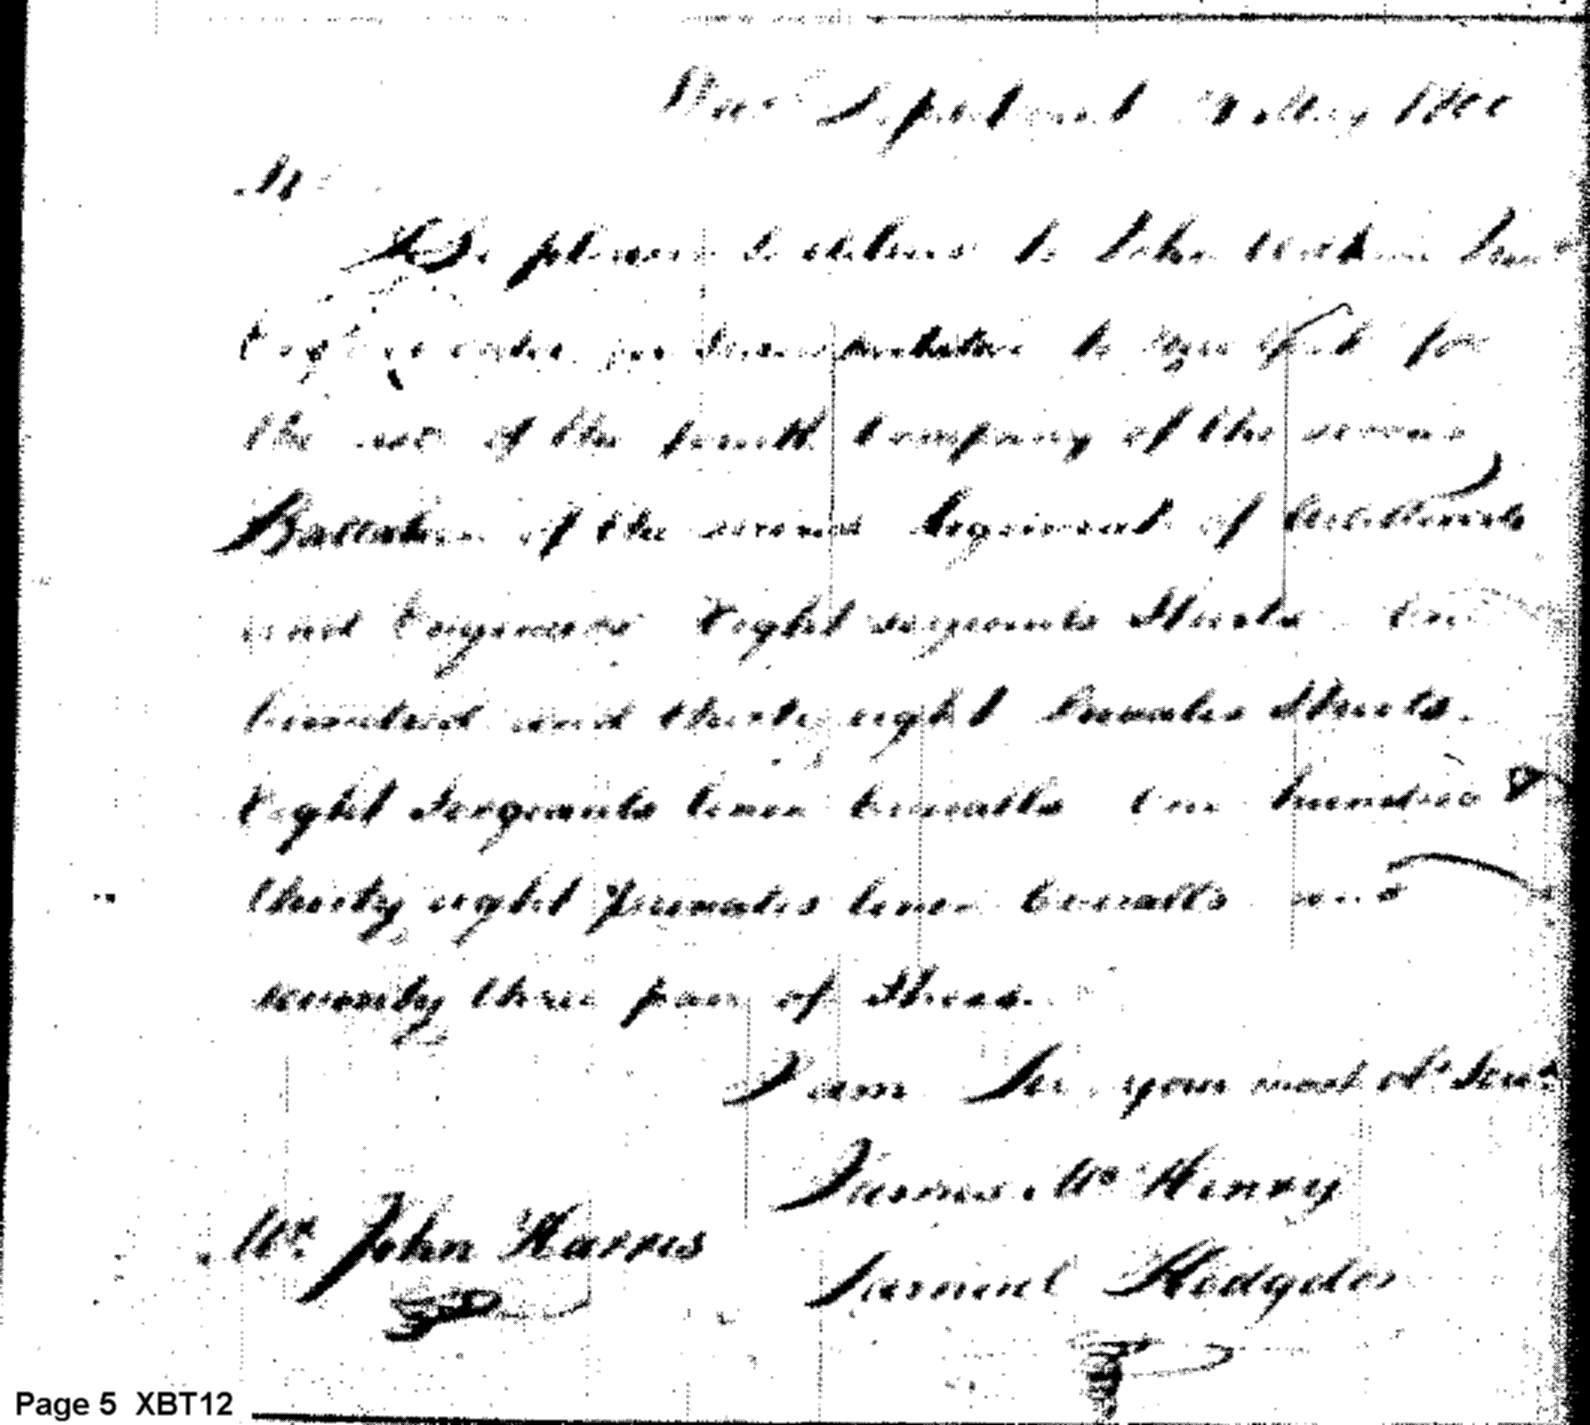 War Department May 1800
Sir
Be pleased to deliver to John Wilkins Junr
for transportation to for
the use of the fourth Company of the second
Battalion of the second Regiment of Artillerists
and Engineers Eight sergeants Shirts One
hundred and thirty eight privates Shirts.
Eight Sergeants linen Overalls One hundred &
thirty eight privates linen Overalls and
seventy three pair of Shoes.
I am Sir, your most obt Servt
James McHenry
Mr. John Harris
Samuel Hodgdon
Page 5 XBT12